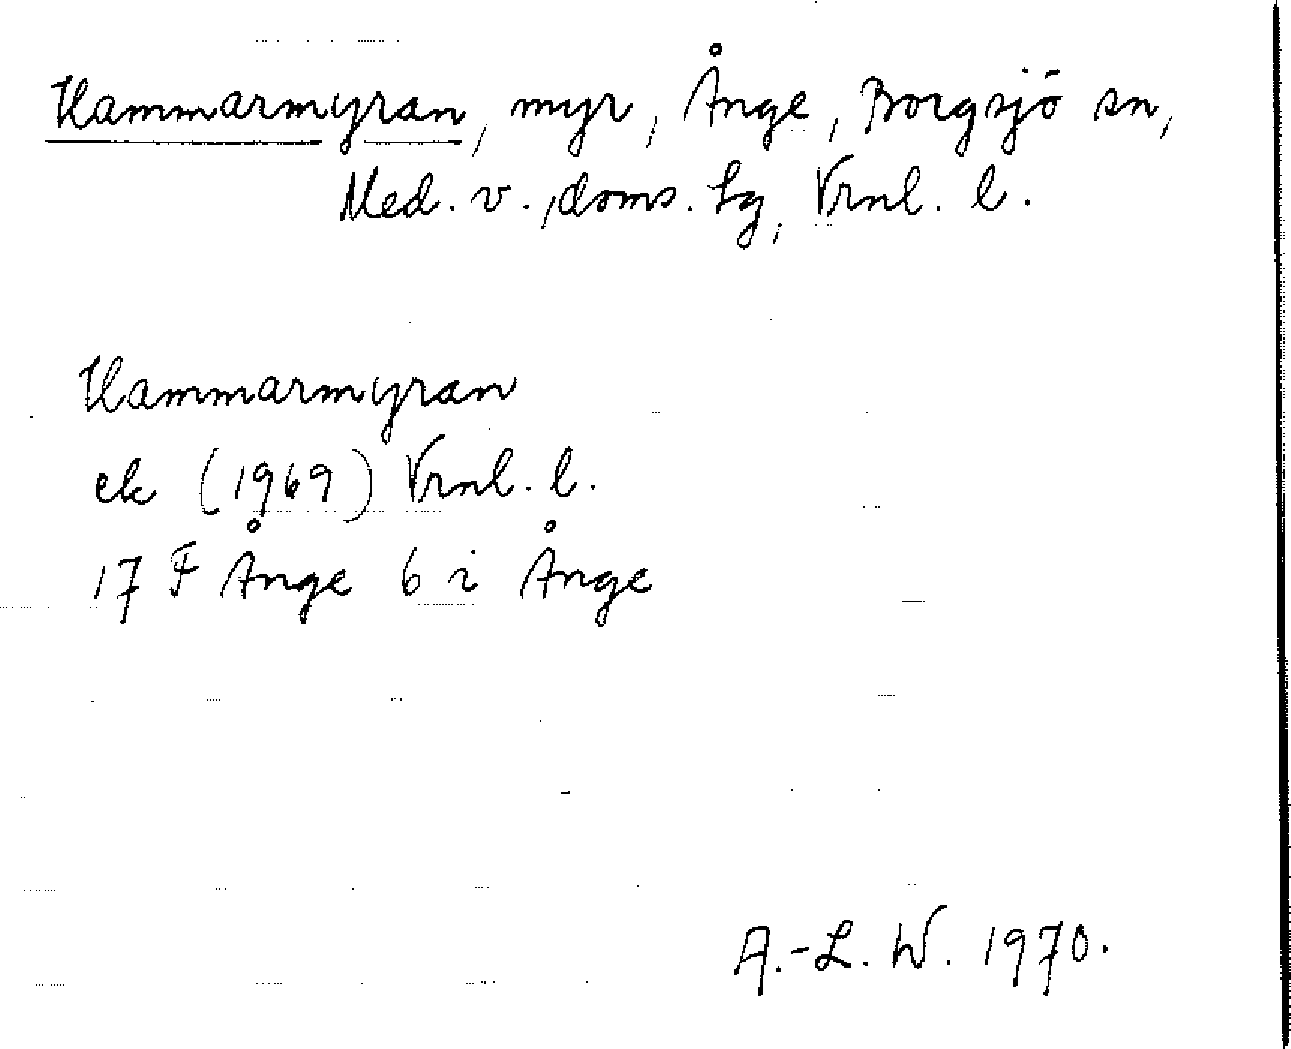 Hammarmyran, myr, Ånge, Borgsjö sn,
Med. v., doms. tg, Vrnl. l.
Hammarmyran
ek (1969) Vrnl. l.
17 F Ånge 6 i Ånge
A.-L. W. 1970.